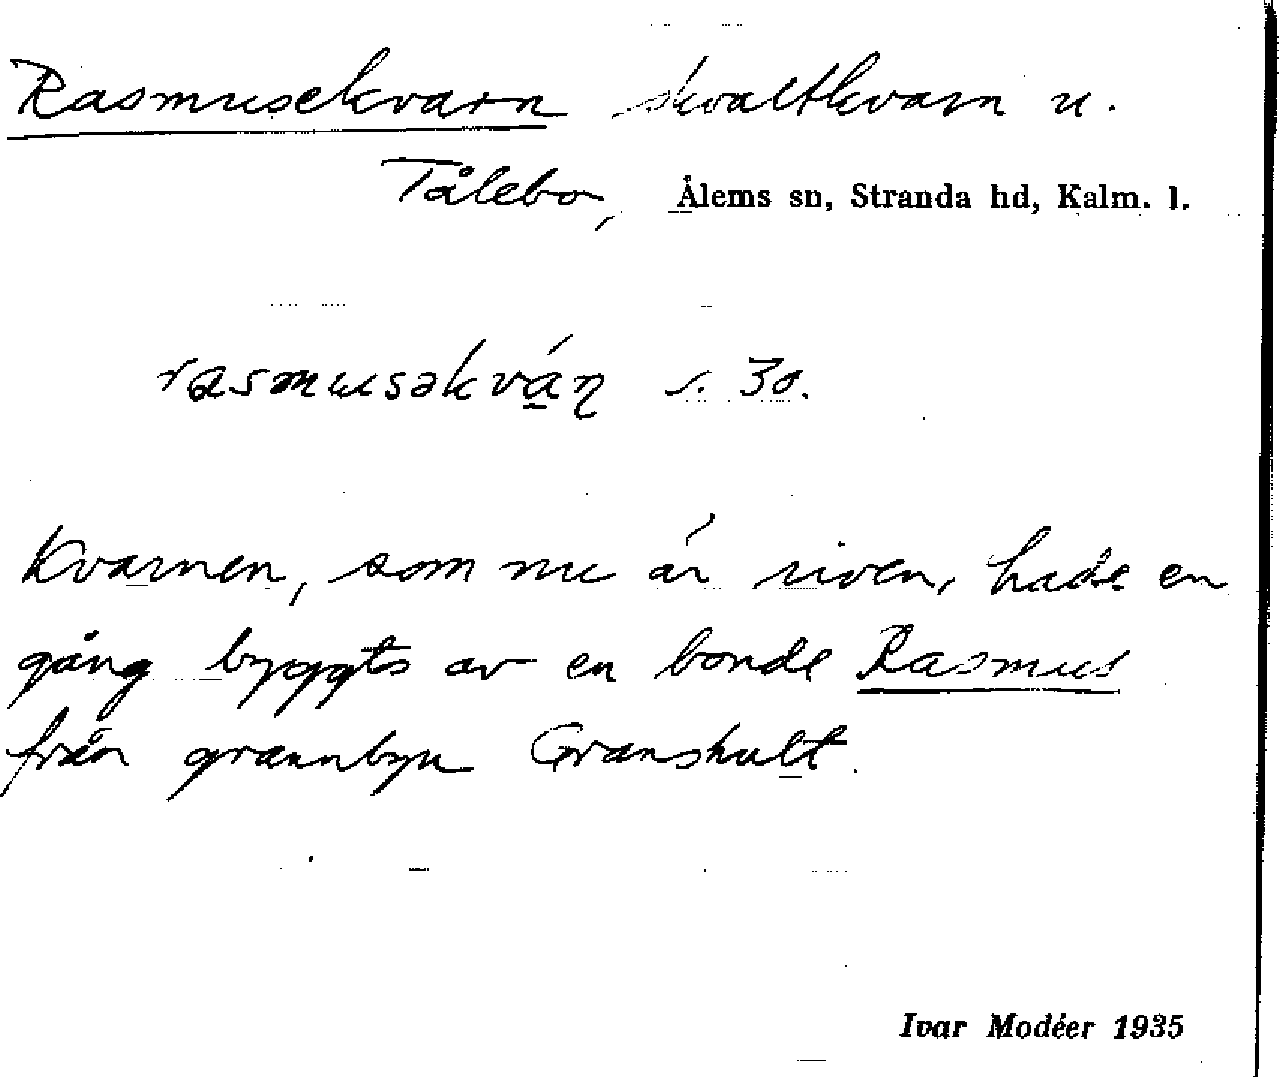 Rasmusekvarn skvaltkvarn u.
Tålebo, Ålems sn, Stranda hd, Kalm. l.
rasmusəkvá̱ṇ s. 30.
Kvarnen, som nu är riven, hade en
gång byggts av en bonde Rasmus
från grannbyn Granshult.
Ivar Modéer 1935